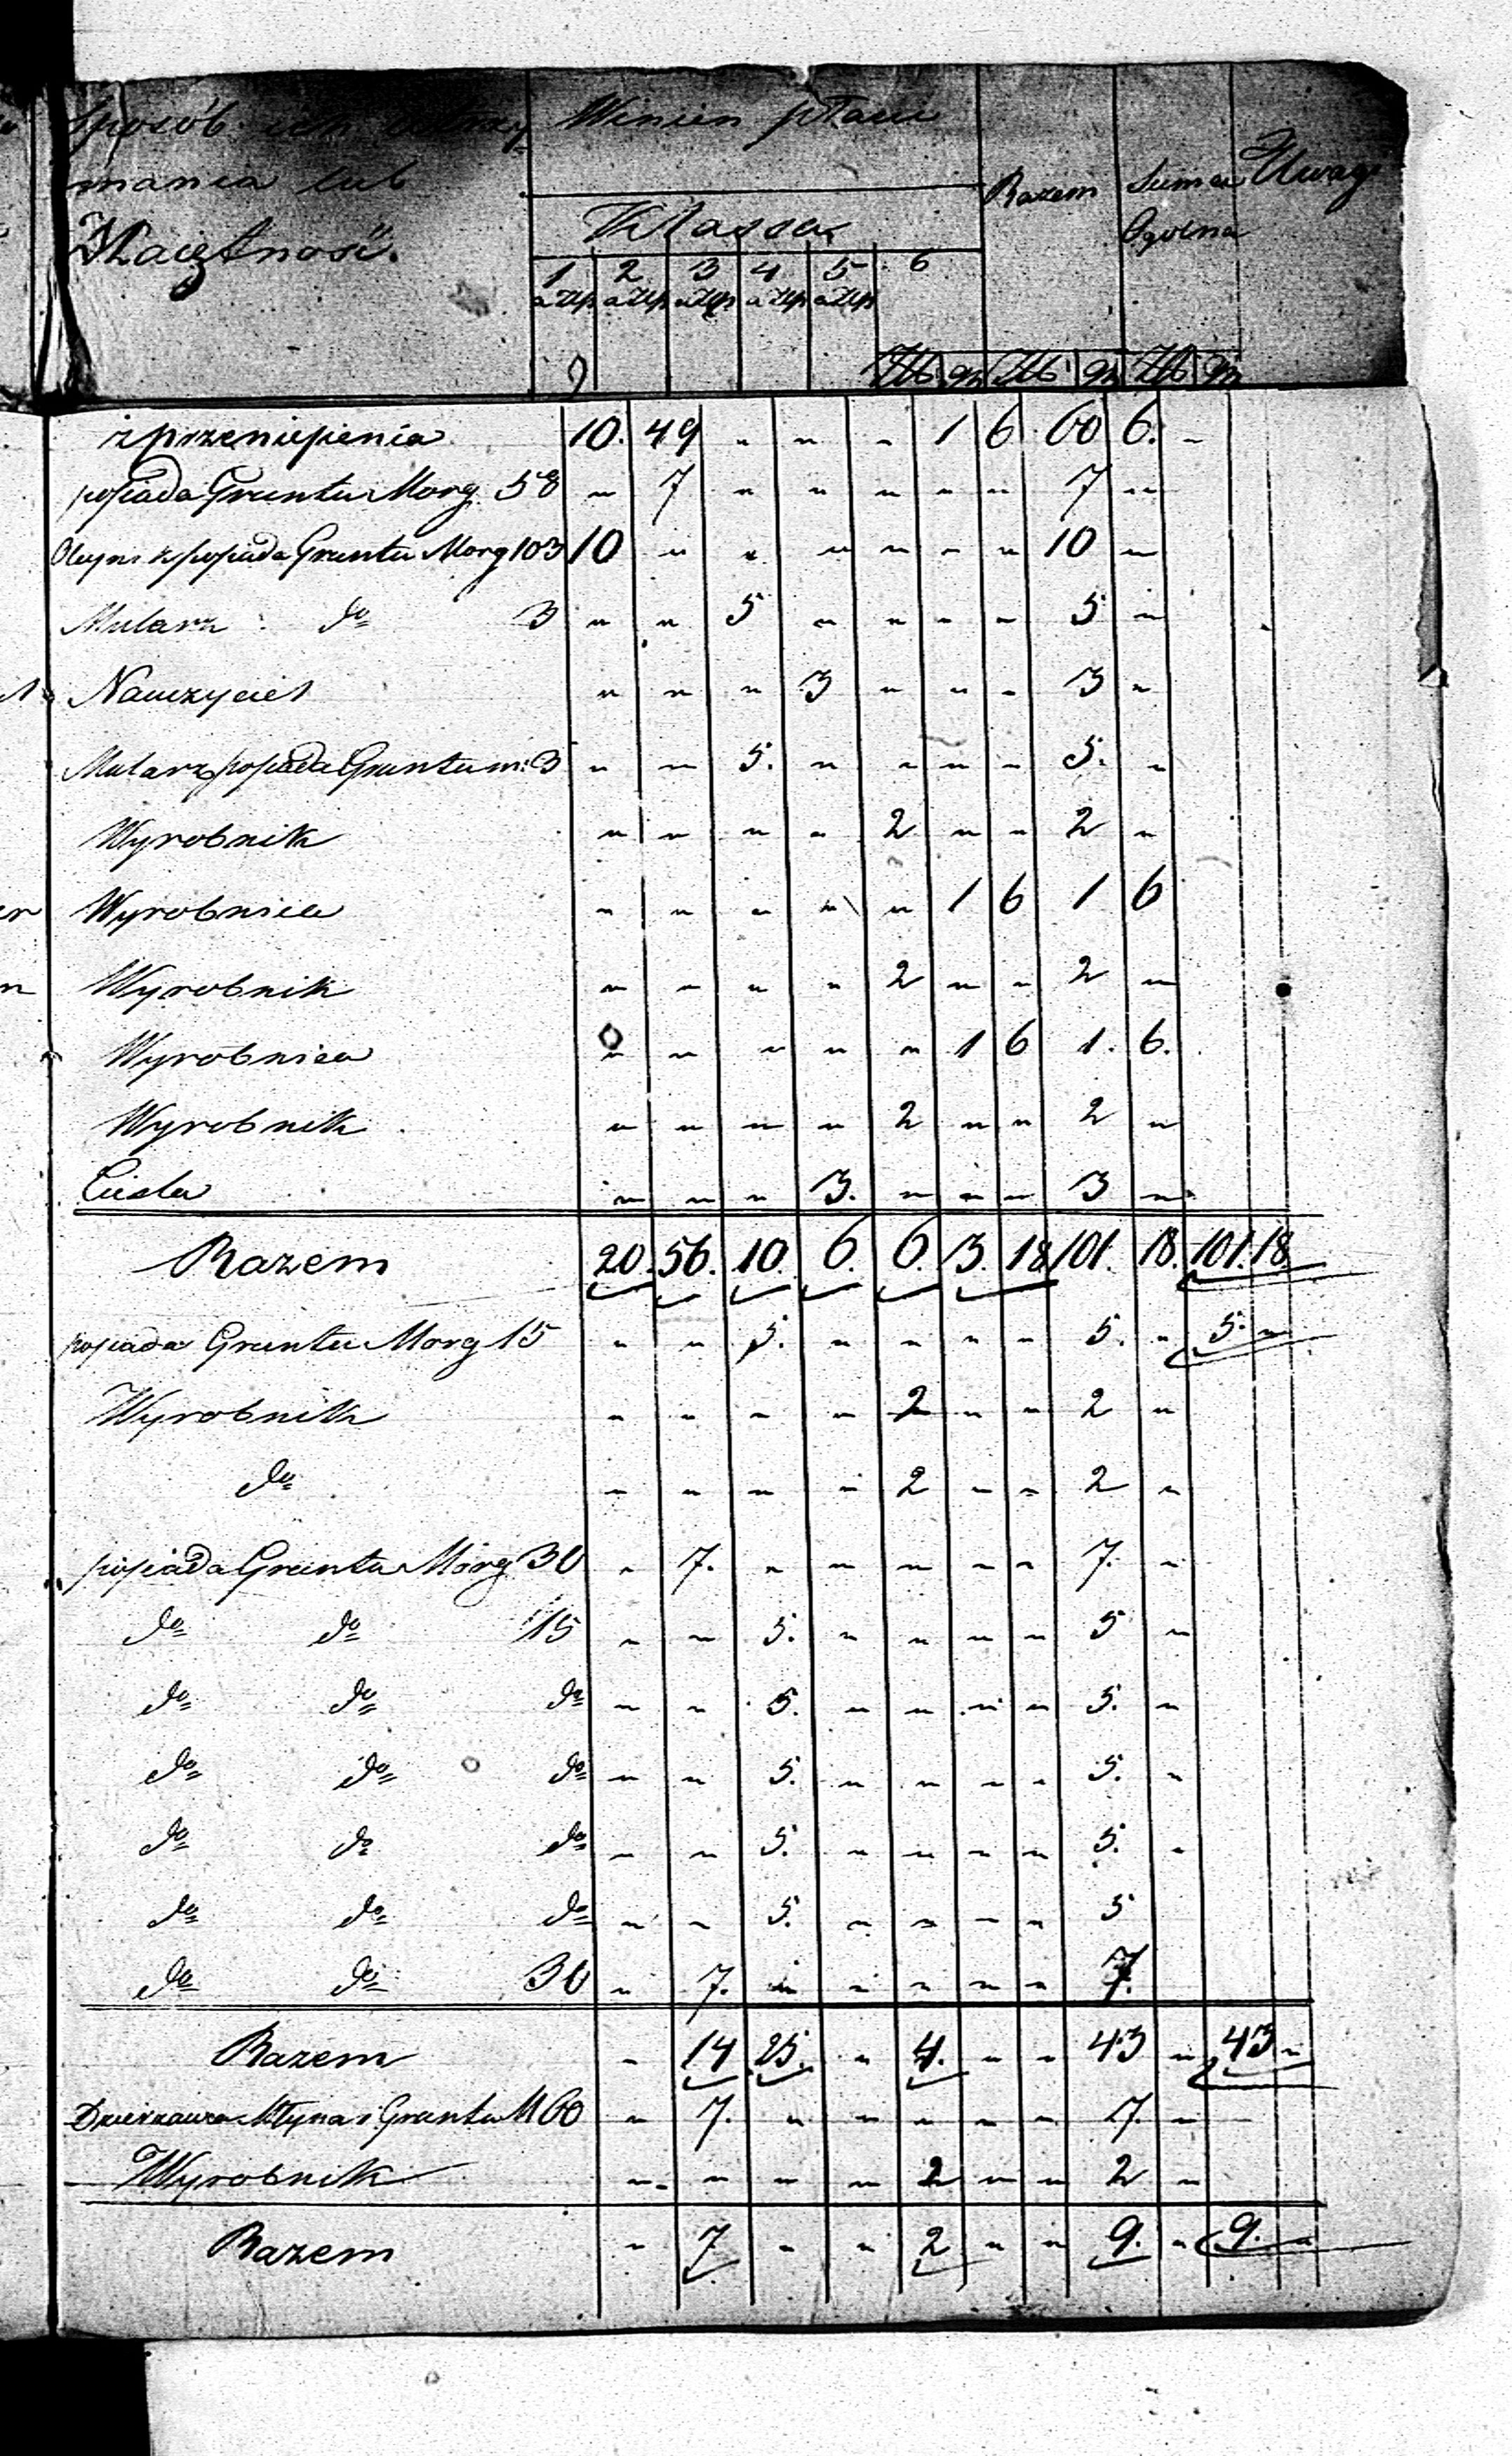 Sposób ich utrzy-
mania lub
Maiętność.
Winien płacić
Klassa
1 2 3 4 5 6
a Złp a Złp a Złp a Złp a Złp
Razem
Suma
Ogólna
Uwagi
Zł. gr Zł. gr Zł. gr
z przeniesienia 10. 49 " " " 1 6 60 6. "
posiada Gruntu Morg 58 " 7 " " " " " 7 "
posiada Gruntu Morg 103 10 " " " " " " 10 "
Mularz do 3 " " 5 " " " " 5 "
Nauczyciel " " " 3 " " " 3 "
Mularz posiada Gruntu m: 3 " " 5. " " " " 5. "
Wyrobnik " " " " 2 " " 2 "
Wyrobnica " " " " " 1 6 1 6
Wyrobnik " " " " 2 " " 2 "
Wyrobnica " " " " " 1 6 1. 6.
Wyrobnik " " " " 2 " " 2 "
Cieśla " " " 3. " " " 3 "
Razem 20. 56. 10. 6. 6. 3. 18 101. 18. 101. 18
posiada Gruntu Morg 15 " " 5. " " " " 5. " 5. "
Wyrobnik " " " " 2 " " 2 "
do " " " " 2 " " 2 "
posiada Gruntu Morg 30 " 7. " " " " " 7. "
do do 15 " " 5. " " " " 5 "
do do do " " 5. " " " " 5. "
do do do " " 5. " " " " 5. "
do do do " " 5. " " " " 5. "
do do do " " 5. " " " " 5
do do 30 " 7. " " " " " 7.
Razem " 14 25. " 4. " " 43 " 43 "
Dzierzawca Młyna i Gruntu M 60 " 7. " " " " " 7. "
Wyrobnik " " " " 2 " " 2 "
Razem " 7 " " 2 " " 9. " 9. "